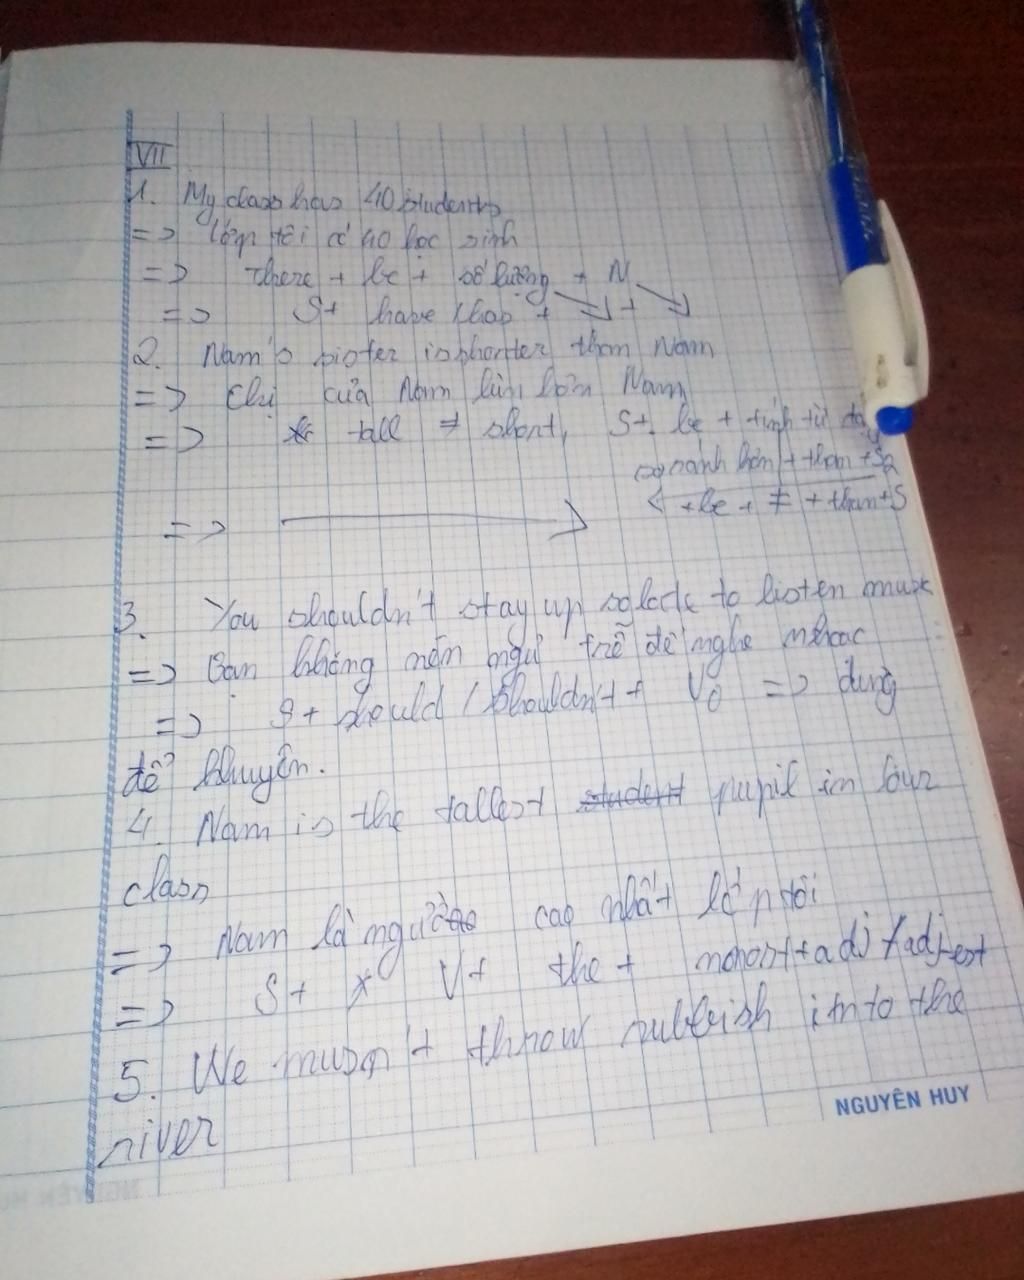 VII
1. My class has 40 students
=> lớp tôi có 40 học sinh
=> there + be + số lượng + N
=> S+ have / has + ↓ + ↓
2. Nam's sister is shorter than Nam
=> chị của Nam lùn hơn Nam
=> tall ≠ short, S+ be + tính từ
so sánh hơn + than + S2
+ be + ≠ + than + S
=>
3. You shouldn't stay up so late to listen music
=> Bạn không nên ngủ trễ để nghe nhạc
=> S + should / shouldn't + V0 => dùng
để khuyên.
4. Nam is the tallest student pupil in our
class
=> Nam là người cao nhất lớp tôi
=> S + V + the + most + adj / adj-est
5. We musn't throw rubbish into the
river
NGUYÊN HUY